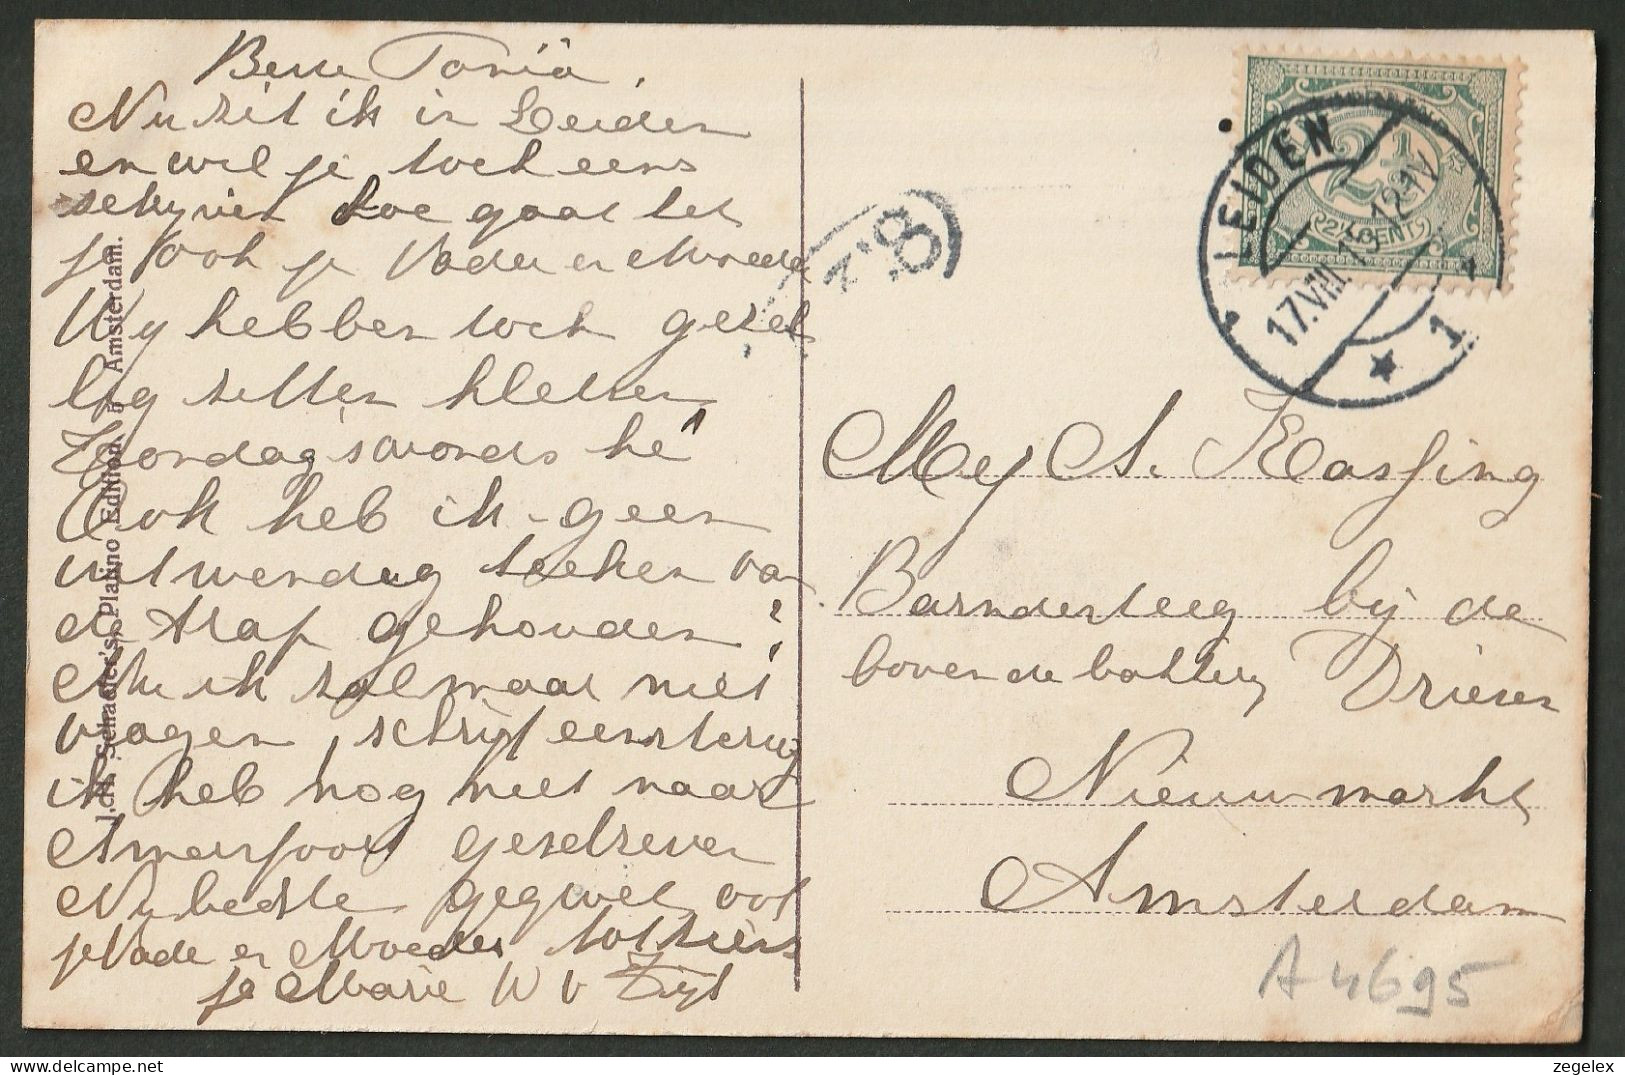 Beste Tonia,
Nu zit ik in Leiden
en wil je toch eens
schrijven hoe gaat het
je ook je Vader en Moeder
Wij hebben toch gezel
lig zitten kletsen
Zondagsavonds hé
Ook heb ik geen
uitwendig teeken van
de trap gehouden!
Nu ik zal maar niet
vragen, schrijf eens terug
ik heb nog niet naar
Amersfoort geschreven
Nu beste gegroet ook
je Vade en Moeder tot ziens
je Marie W v Zijl
J.H. Schaefer's Platino Edition. Amsterdam.
8.Z
LEIDEN
17.VIII.15 12-1V
1
2½
2½ CENT
Mej A. Klasfing
Barndesteeg bij de
boven de bakkerij Driesen
Nieuwmarkt
Amsterdam
A 4695
zegelex